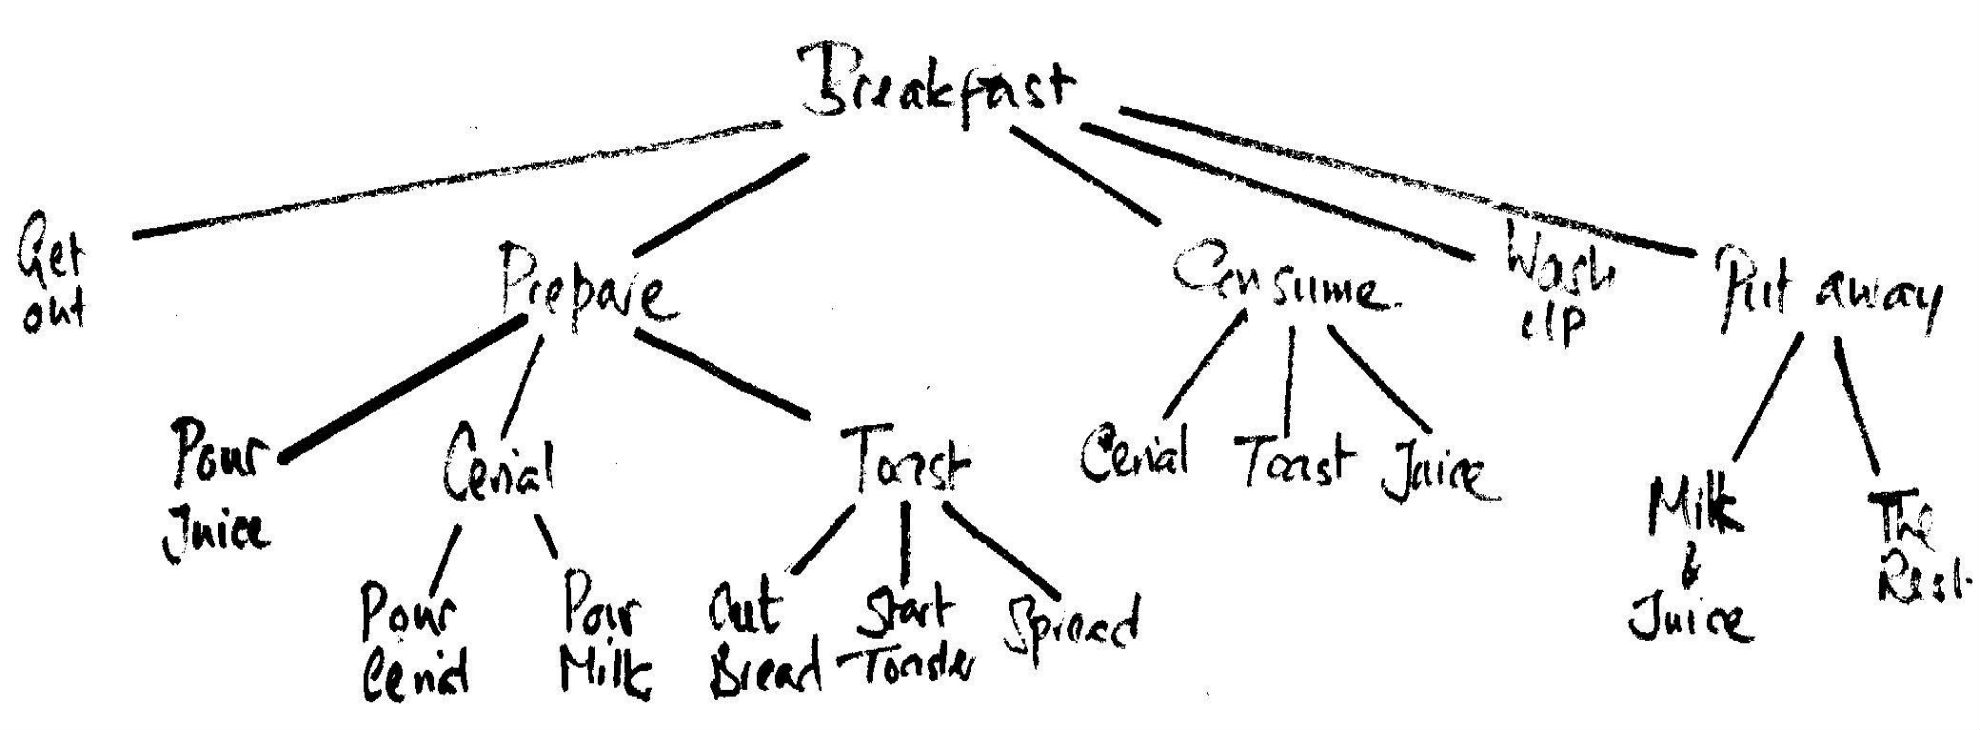 Breakfast
Get
out
Prepare
Consume
Wash
up
Put away
Pour
Juice
Cerial
Toast
Cerial
Toast
Juice
Milk
&
Juice
The
Rest
Pour
Cerial
Pour
Milk
Cut
Bread
Start
Toaster
Spread